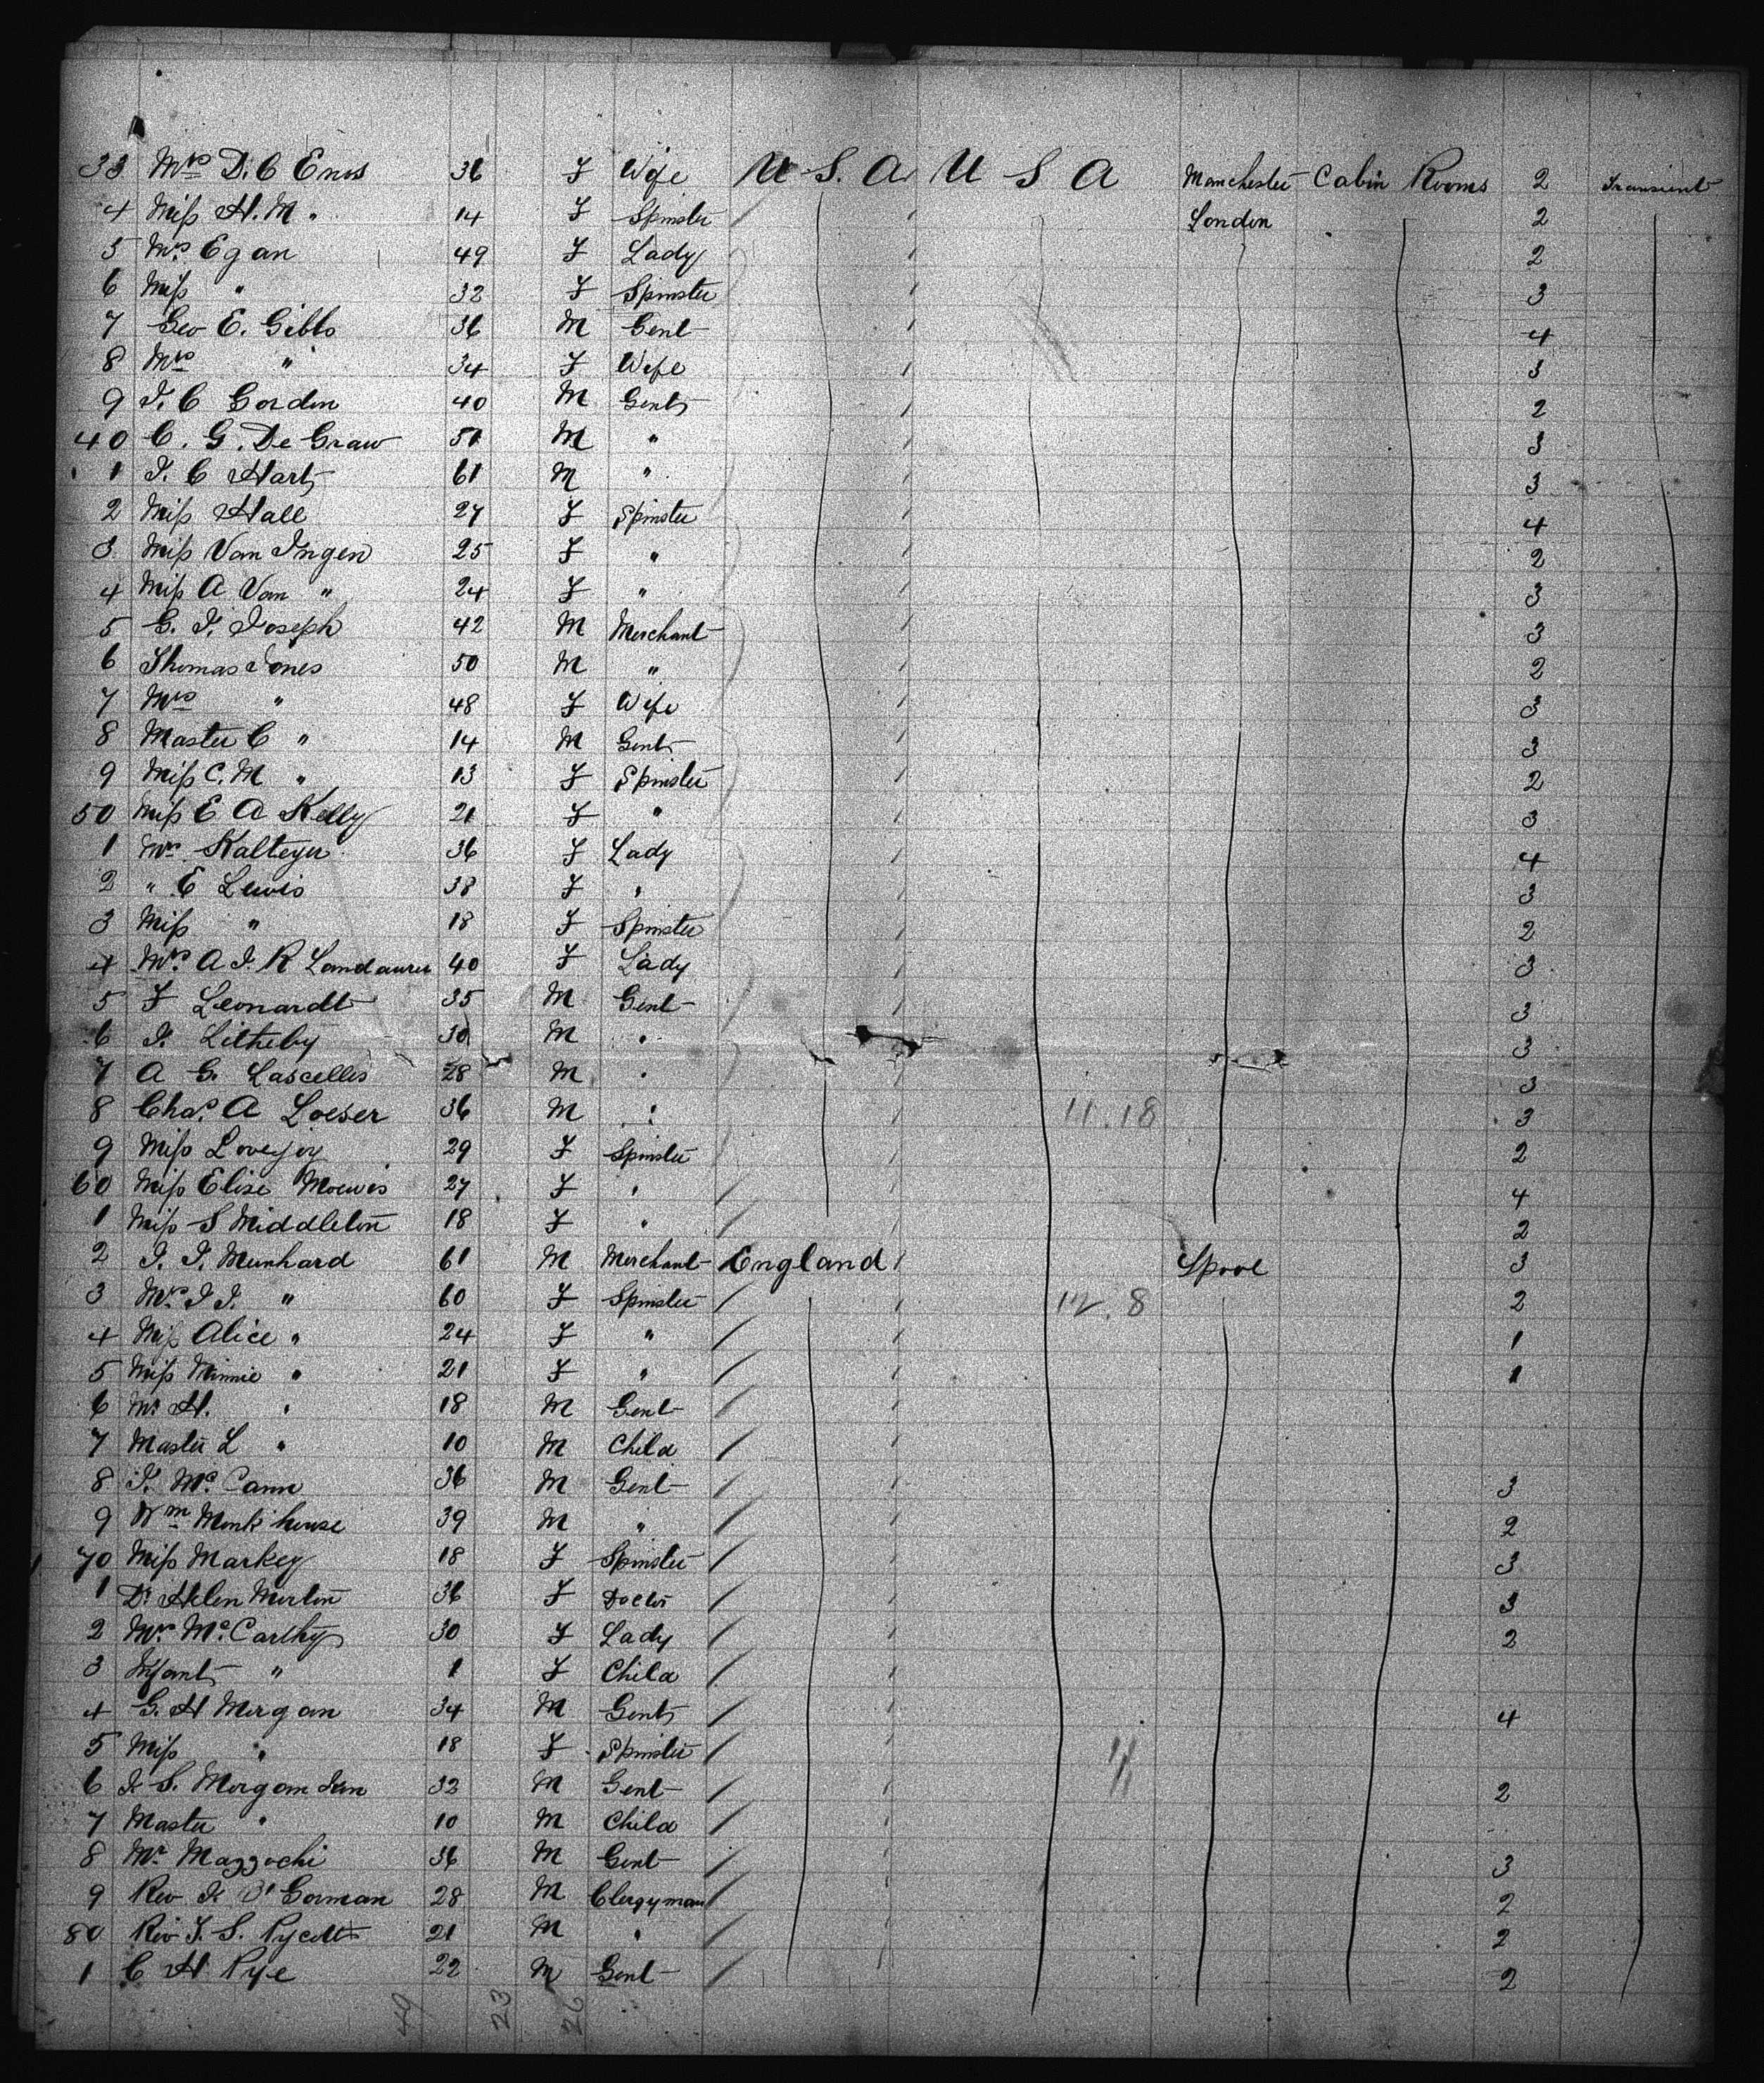 33 Mrs D. C Enos 36 F Wife U. S. A U S A Manchester Cabin Rooms 2 Transient
4 Miss H. M. " 14 F Spinster London 2
5 Mrs Egan 49 F Lady 2
6 Miss " 32 F Spinster 3
7 Geo E. Gibbs 36 M Gent 4
8 Mrs " 34 F Wife 3
9 J. C Gordon 40 M Gent 2
40 C. G. De Graw 51 M " 3
1 J. C Hart 61 M " 3
2 Miss Hall 27 F Spinster 4
3 Miss Van Ingen 25 F " 2
4 Miss A Van " 24 F " 3
5 G. J. Joseph 42 M Merchant 3
6 Thomas Jones 50 M " 2
7 Mrs " 48 F Wife 3
8 Master C " 14 M Gent 3
9 Miss C. M " 13 F Spinster 2
50 Miss E A Kelly 21 F " 3
1 Mrs Kalteyer 36 F Lady 4
2 " E Lewis 38 F " 3
3 Miss " 18 F Spinster 2
4 Mrs A. J. R Landauer 40 F Lady 3
5 F Leonardt 35 M Gent 3
6 J. Litheby 30 M " 3
7 A G. Lascelles 28 M " 3
8 Chas. A Loeser 36 M " 11.18 3
9 Miss Lovejoy 29 F Spinster 2
60 Miss Elise Moewis 27 F " 4
1 Miss S Middleton 18 F " 2
2 J. J. Munhard 61 M Merchant England Lpool 3
3 Mrs J J. " 60 F Spinster 12.8 2
4 Miss Alice " 24 F " 1
5 Miss Minnie " 21 F " 1
6 Mr H. " 18 M Gent
7 Master L " 10 M Child
8 J. Mc Cann 36 M Gent 3
9 Wm Monkhouse 39 M " 2
70 Miss Markey 18 F Spinster 3
1 Dr Helen Morton 36 F Doctor 3
2 Mrs McCarthy 30 F Lady 2
3 Infant " 1 F Child
4 G. H Morgan 34 M Gent 4
5 Miss " 18 F Spinster
6 J. S. Morgan Jun 32 M Gent 2
7 Master " 10 M Child
8 Mr Mazzochi 36 M Gent 3
9 Rev J. O'Gorman 28 M Clergyman 2
80 Rev J. S. Pycott 21 M " 2
1 C H Pye 22 M Gent 2
49 23 26